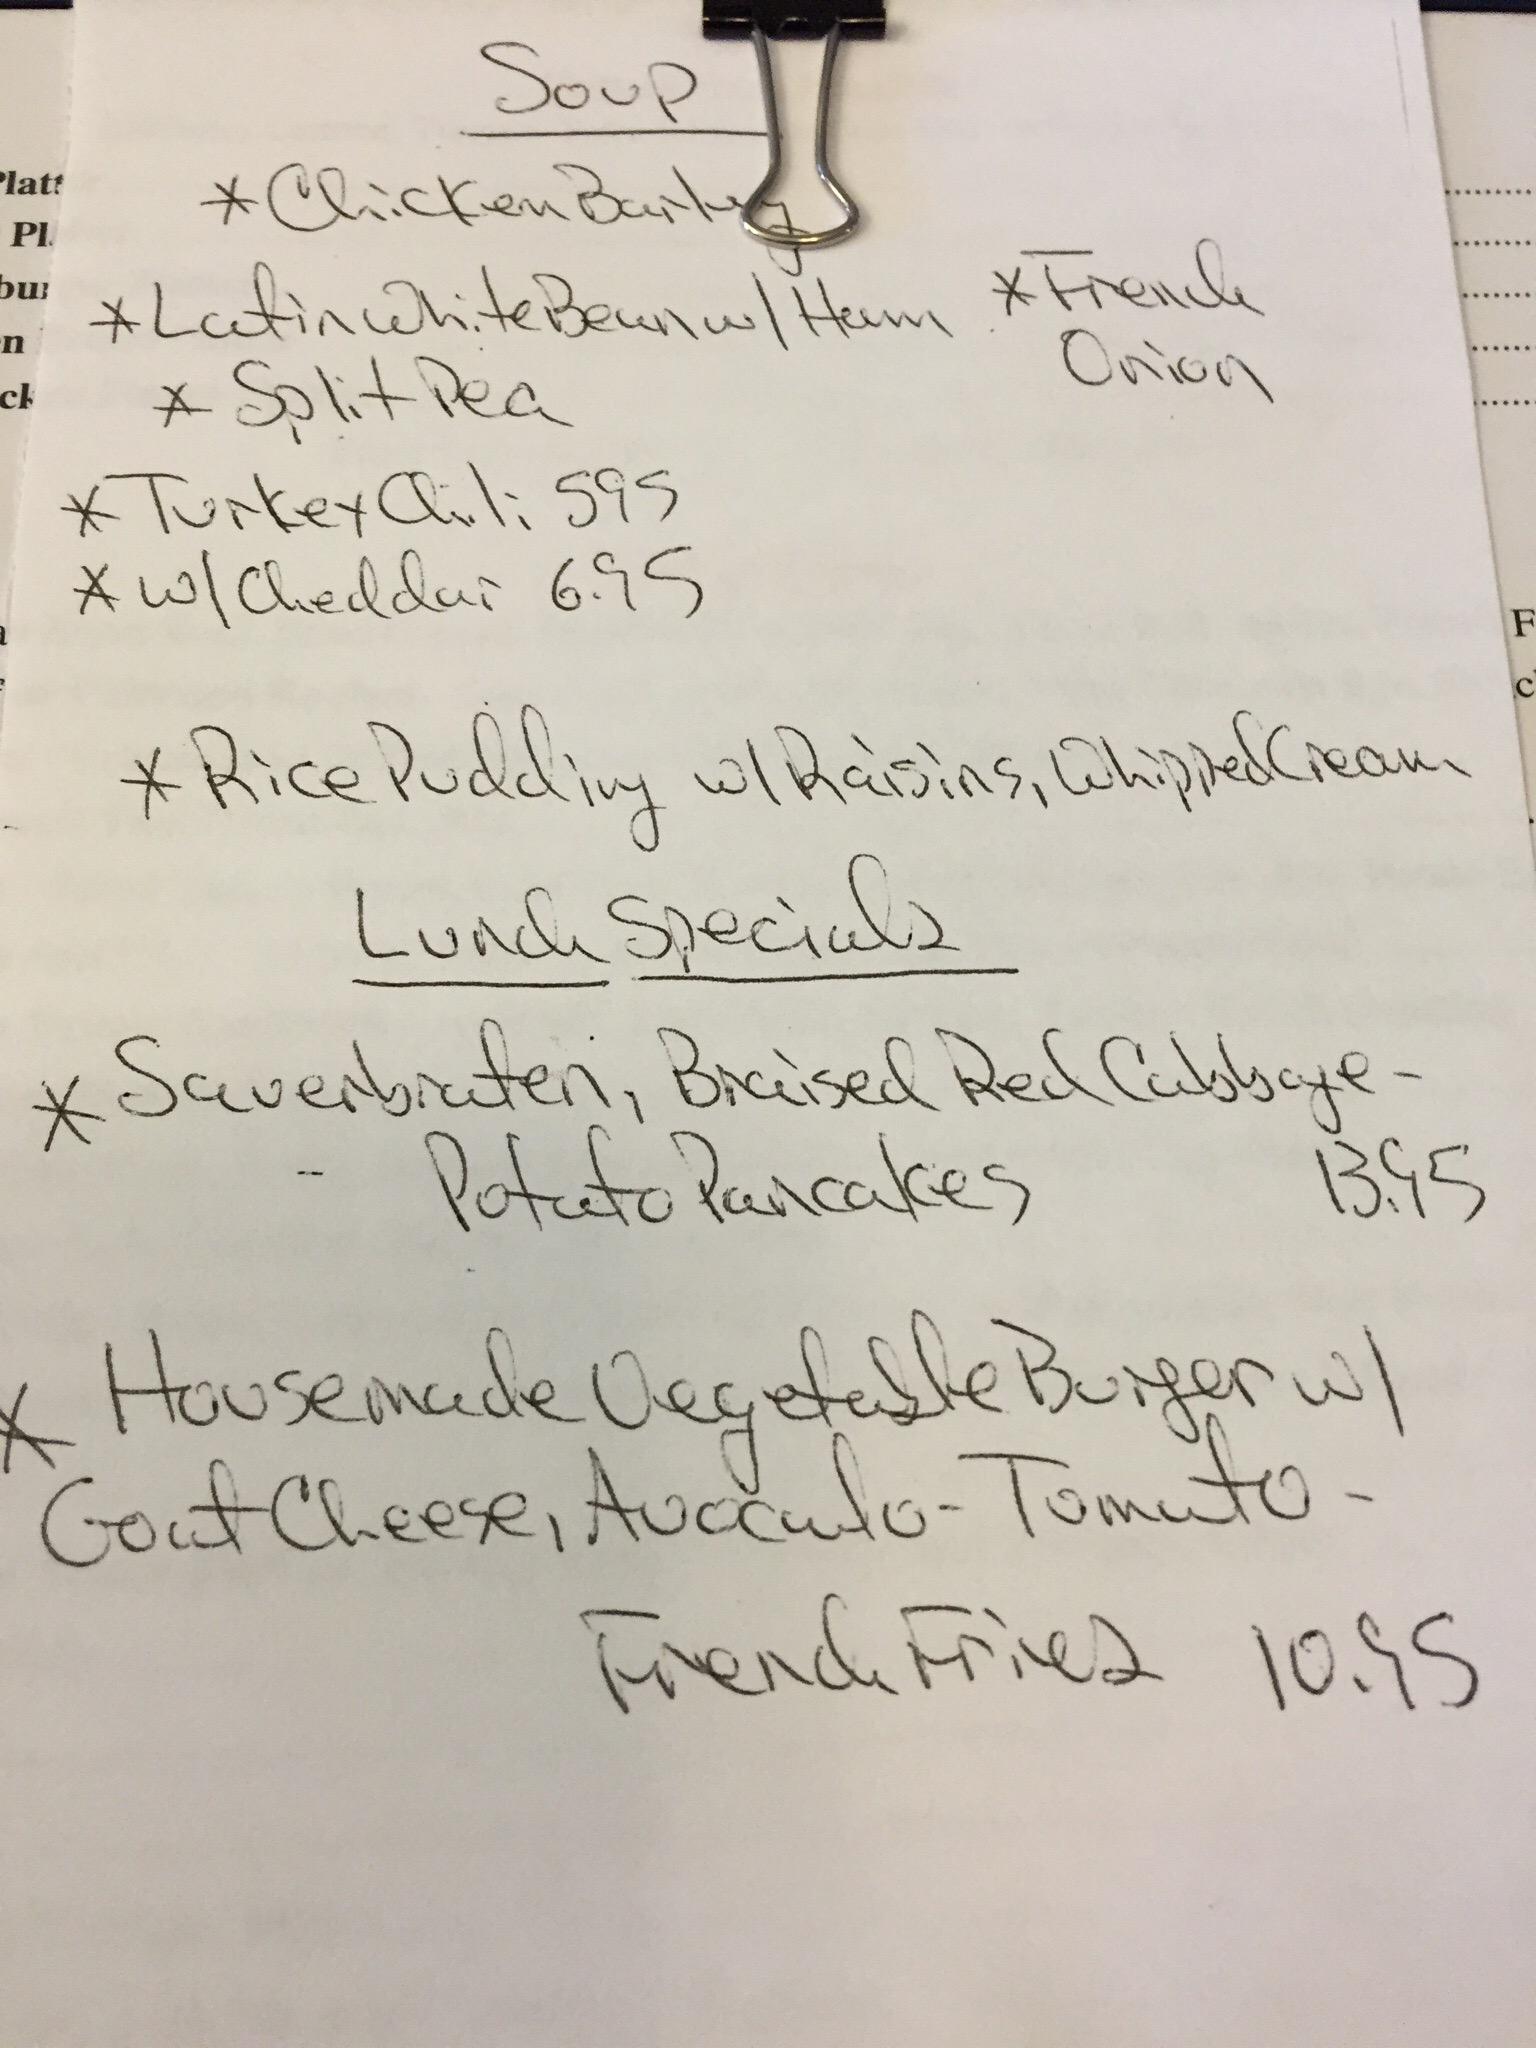 Soup
* Chicken Barley
* Latin White Bean w/ Ham
* French
Onion
* Split Pea
* Turkey Chili 595
* w/ Cheddar 6.95
* Rice Pudding w/ Raisins, Whipped Cream
Lunch Specials
* Sauerbraten, Braised Red Cabbage -
- Potato Pancakes 13.95
* Housemade Vegetable Burger w/
Goat Cheese, Avocado - Tomato -
French Fries 10.95